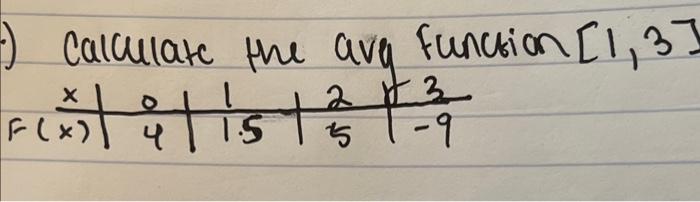 ) Calculate the avg function [1,3]
x | 0 | 1 | 2 | 3
F(x) | 4 | 1.5 | 5 | -9